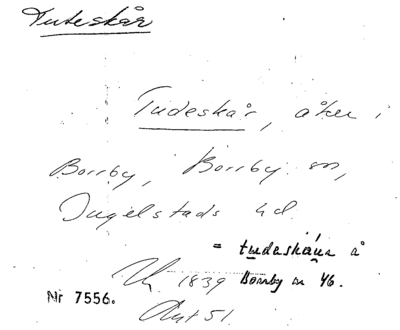 Tudeskår
Tudeskår, åker i
Borrby, Borrby sn,
Ingelstads hd.
= tudeskåur å
1839 Borrby sn 46.
Nr 7556.
51